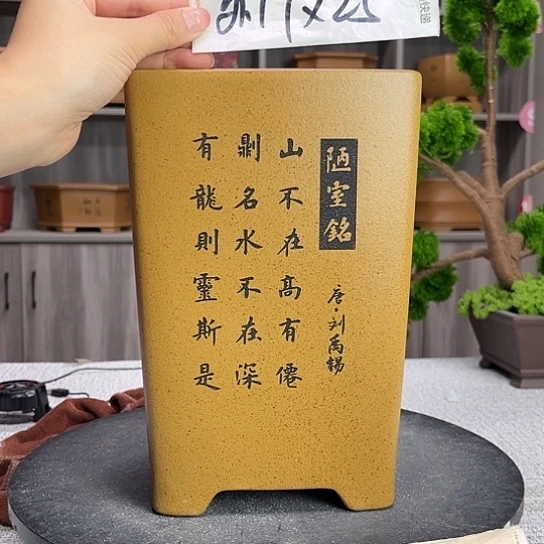 陋室銘
唐·刘禹錫
山不在髙有僊
則名水不在深
有龍則靈斯是
快递